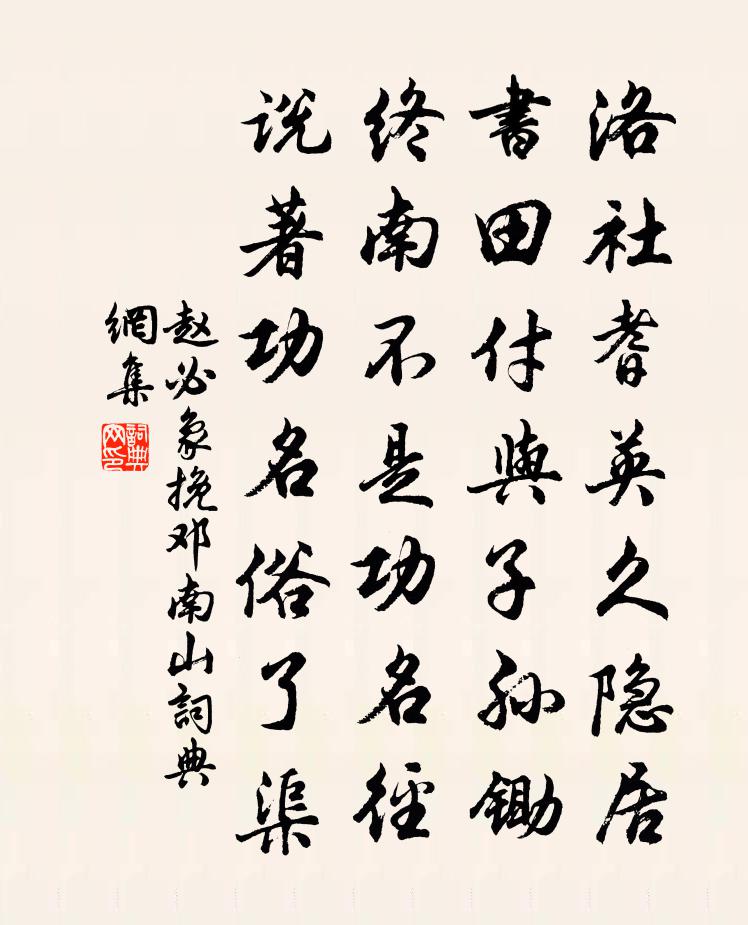 洛社耆英久隐居
書田付與子孫鋤
终南不是功名徑
説著功名俗了渠
赵必象挽邓南山詞典
網集
詞典
网印